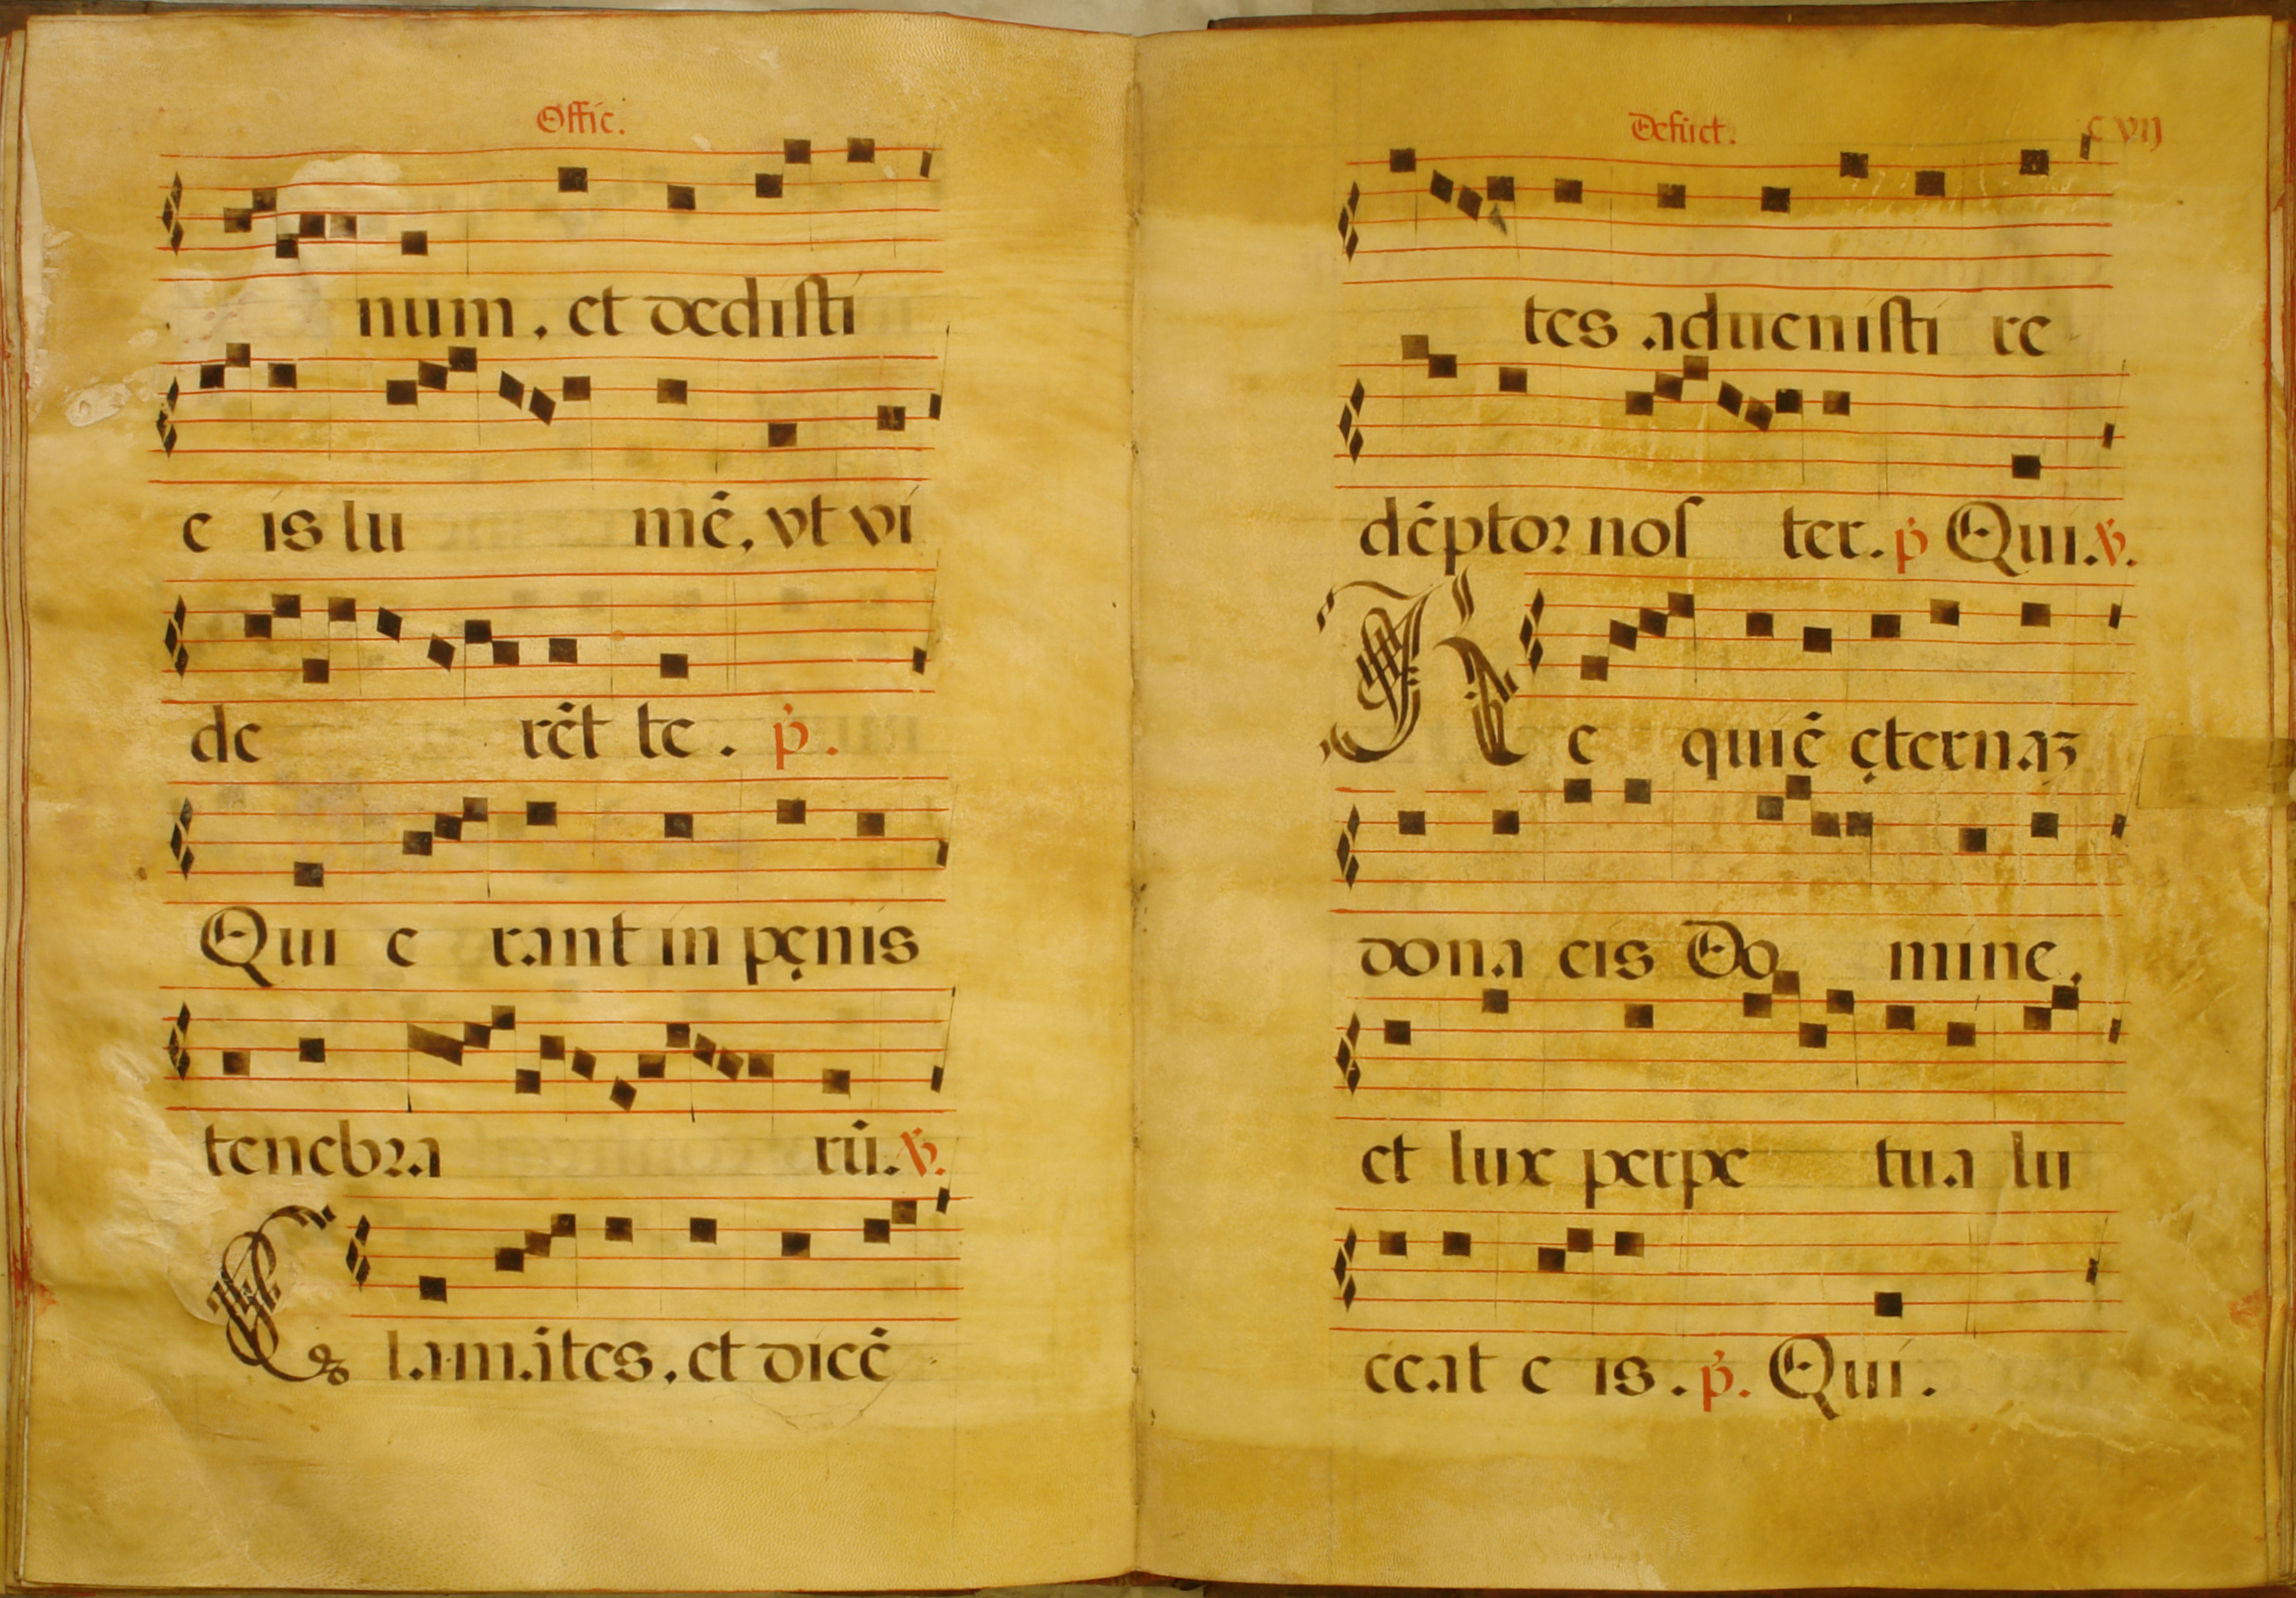 Offic.
num, et dedisti
e is lu mē, vt vi
de rēt te. p̄.
Qui e rant in pęnis
tenebra rū. ℣.
Clamātes, et dicē
Defūct. C vij
tes aduenisti re
dēptor nos ter. p̄ Qui. ℣.
Re quiē ęternaʒ
dona eis Do mine,
et lux perpe tua lu
ceat e is. p̄. Qui.